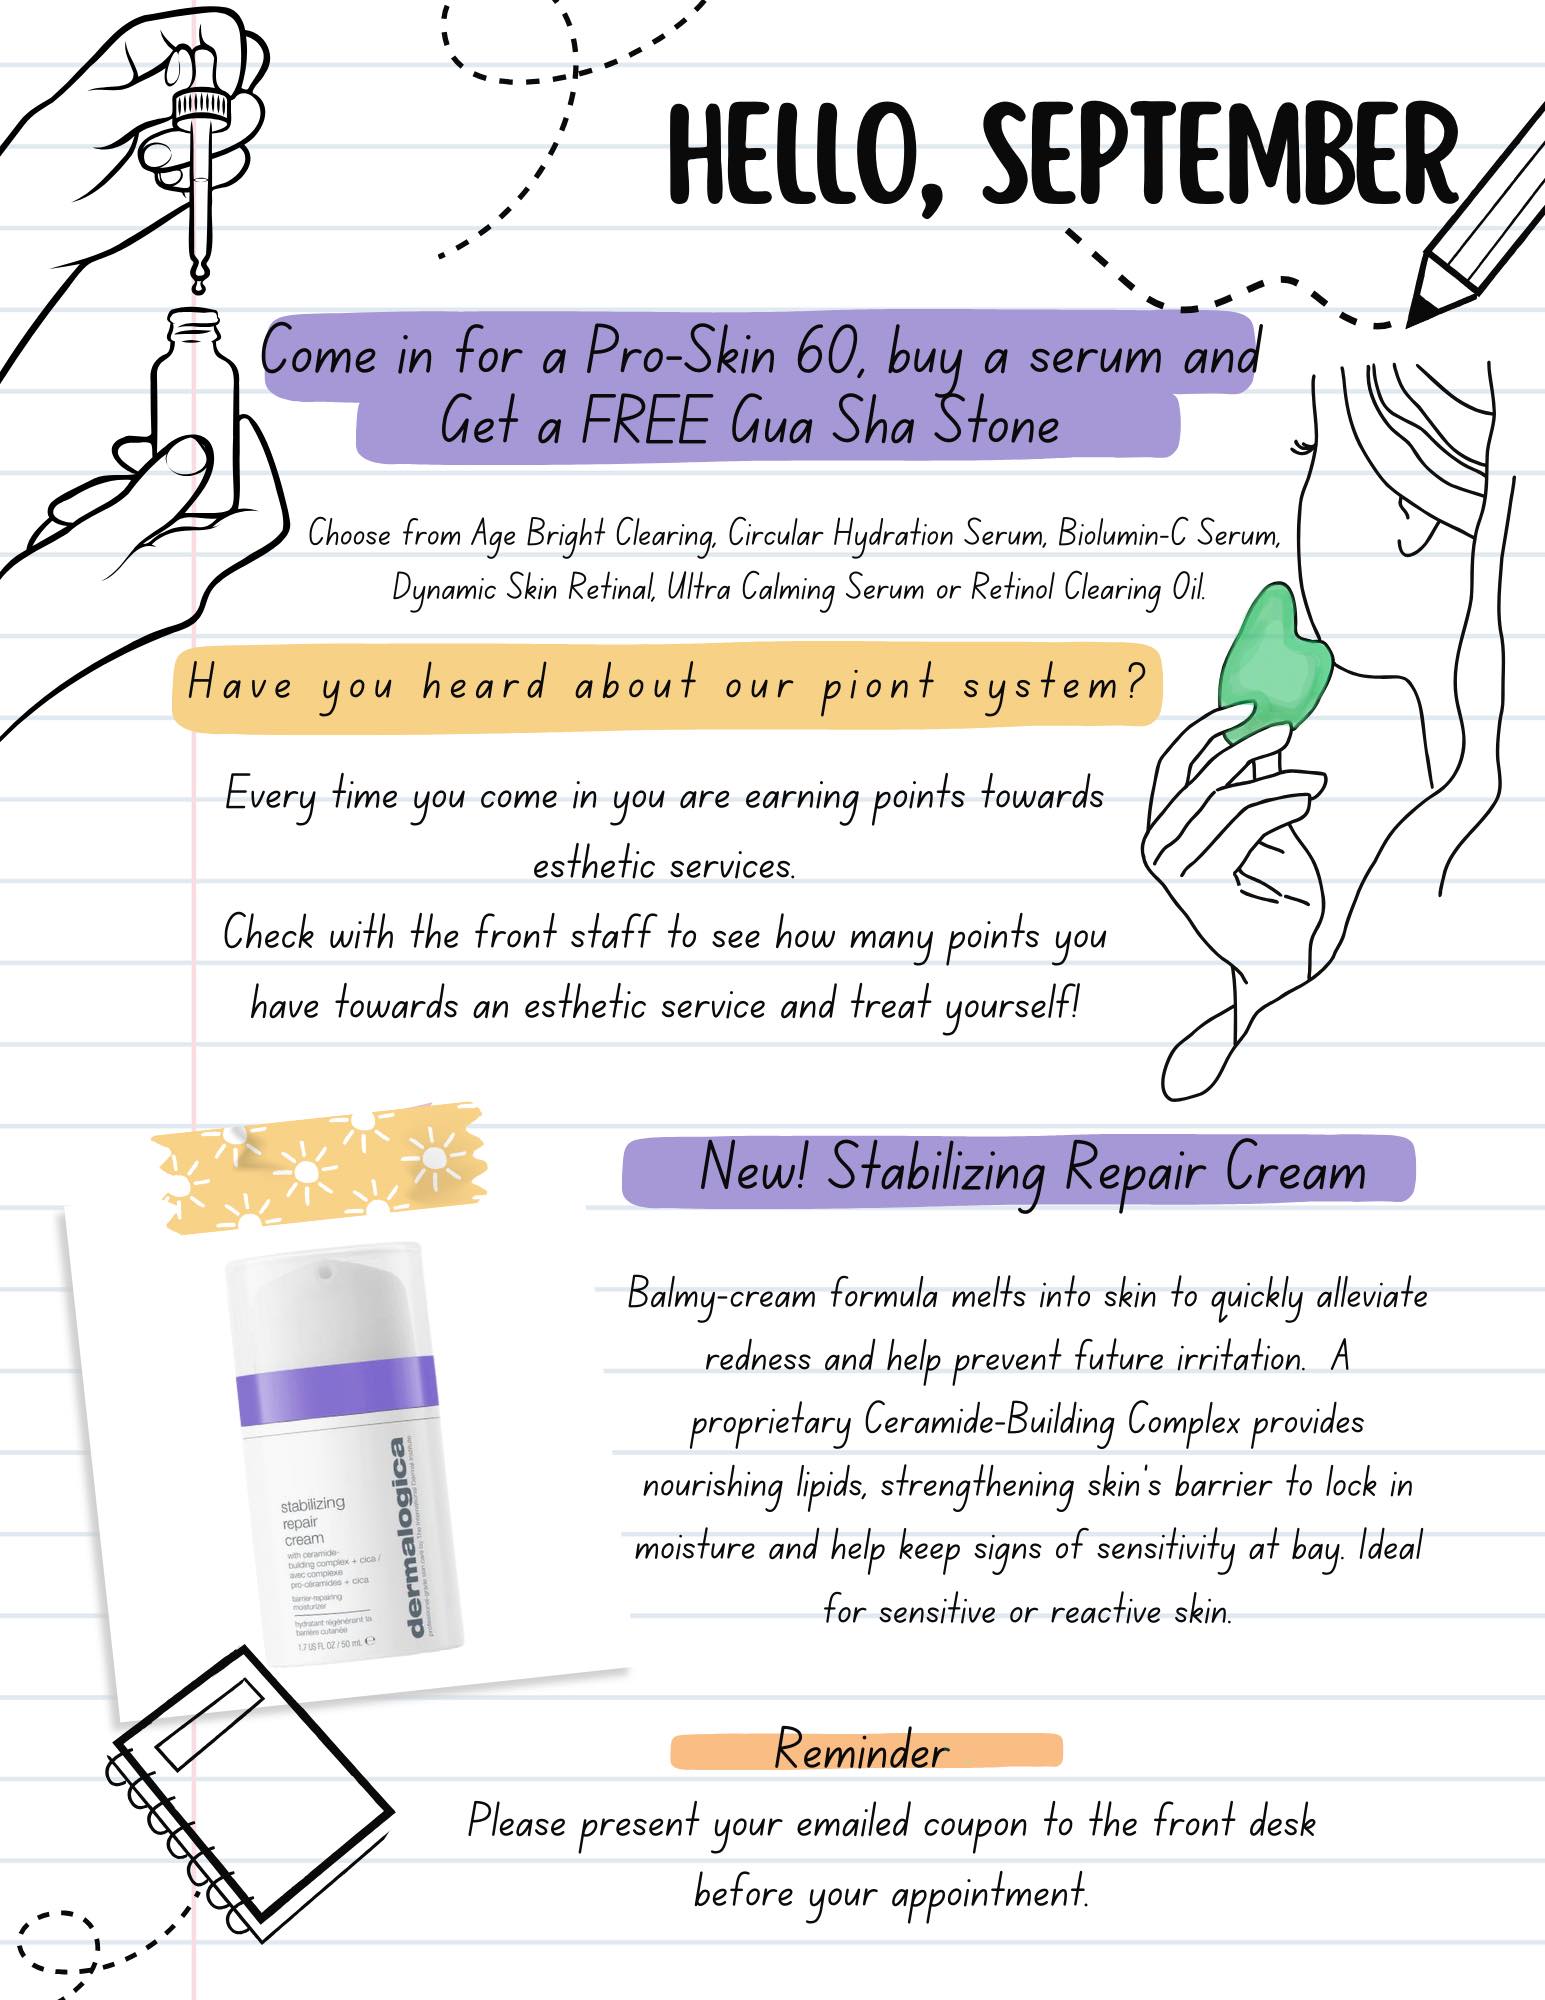 HELLO, SEPTEMBER
Come in for a Pro-Skin 60, buy a serum and
Get a FREE Gua Sha Stone
Choose from Age Bright Clearing, Circular Hydration Serum, Biolumin-C Serum,
Dynamic Skin Retinal, Ultra Calming Serum or Retinol Clearing Oil.
Have you heard about our piont system?
Every time you come in you are earning points towards
esthetic services.
Check with the front staff to see how many points you
have towards an esthetic service and treat yourself!
New! Stabilizing Repair Cream
Balmy-cream formula melts into skin to quickly alleviate
redness and help prevent future irritation. A
proprietary Ceramide-Building Complex provides
nourishing lipids, strengthening skin's barrier to lock in
moisture and help keep signs of sensitivity at bay. Ideal
for sensitive or reactive skin.
stabilizing
repair
cream
with ceramide-
building complex + cica /
avec complexe
pro-céramides + cica
barrier-repairing
moisturizer
hydratant régénérant la
barrière cutanée
1.7 US FL OZ / 50 mL ℮
dermalogica
professional-grade skin care by The International Dermal Institute
Reminder
Please present your emailed coupon to the front desk
before your appointment.